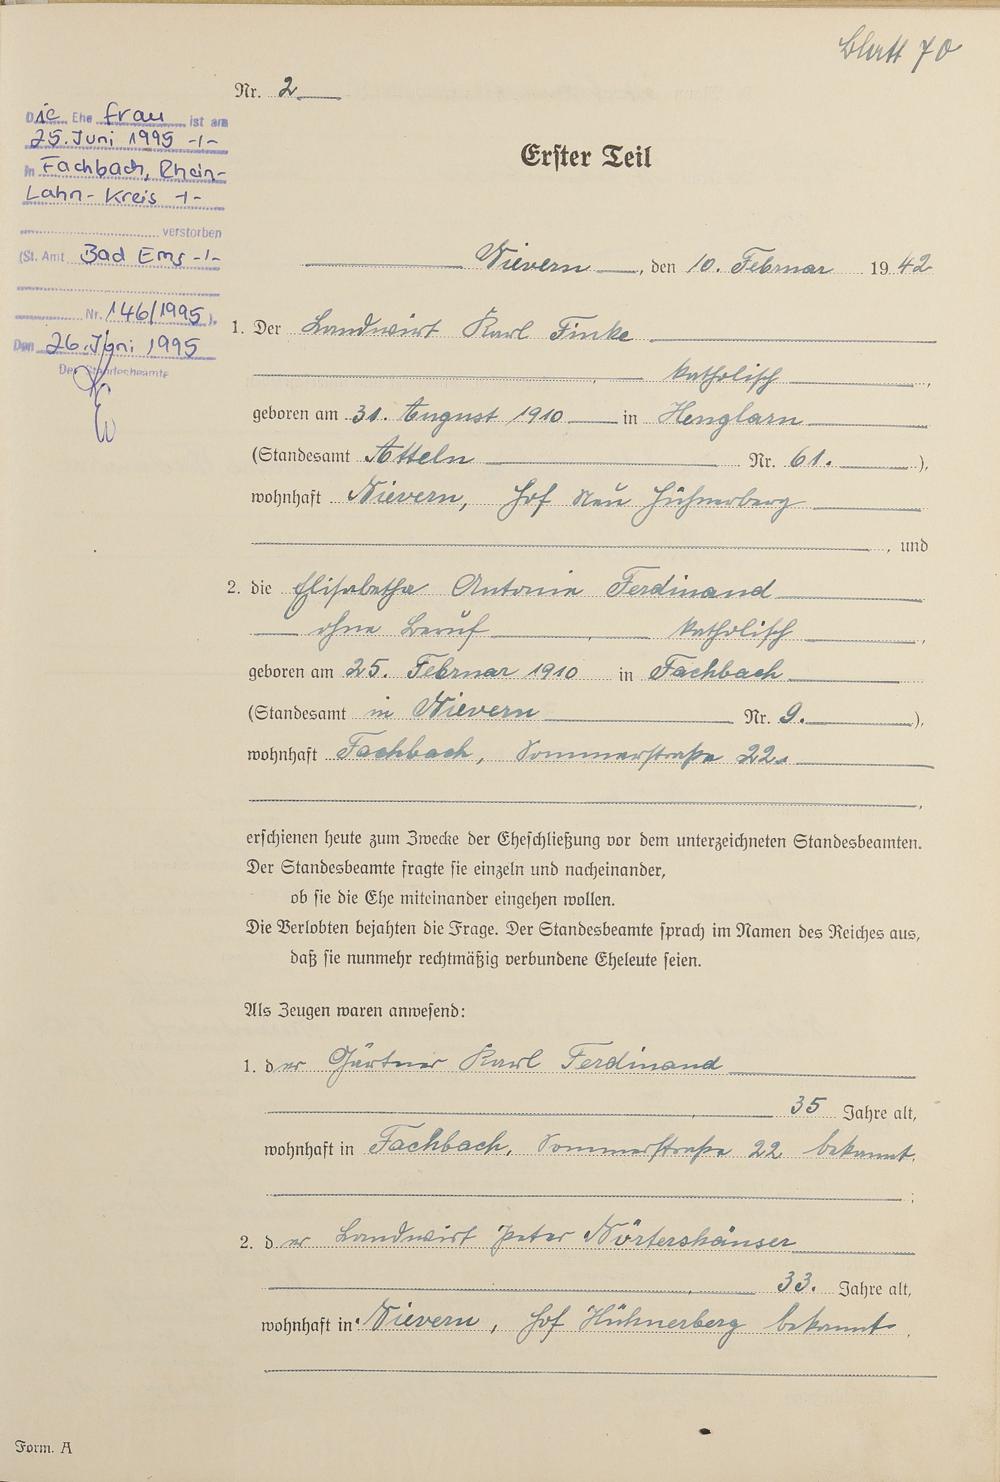 Blatt 70
Nr. 2
Die Ehefrau ist am
25. Juni 1995 -/-
in Fachbach, Rhein-
Lahn-Kreis -/-
verstorben
(St. Amt Bad Ems -/-
Nr. 146/1995).
Den 26. Juni 1995
Der Standesbeamte
Erster Teil
Nievern, den 10. Februar 1942
1. Der Landwirt Karl Finke
katholisch,
geboren am 31. August 1910 in Henglarn
(Standesamt Atteln Nr. 61.),
wohnhaft Nievern, Hof Neu Hühnerberg
, und
2. die Elisabetha Antonie Ferdinand
ohne Beruf, katholisch,
geboren am 25. Februar 1910 in Fachbach
(Standesamt in Nievern Nr. 9.),
wohnhaft Fachbach, Sommerstraße 22.
,
erschienen heute zum Zwecke der Eheschließung vor dem unterzeichneten Standesbeamten.
Der Standesbeamte fragte sie einzeln und nacheinander,
ob sie die Ehe miteinander eingehen wollen.
Die Verlobten bejahten die Frage. Der Standesbeamte sprach im Namen des Reiches aus,
daß sie nunmehr rechtmäßig verbundene Eheleute seien.
Als Zeugen waren anwesend:
1. der Gärtner Karl Ferdinand
, 35 Jahre alt,
wohnhaft in Fachbach, Sommerstraße 22 bekannt.
;
2. der Landwirt Peter Nörtershäuser
, 33. Jahre alt,
wohnhaft in Nievern, Hof Hühnerberg bekannt.
Form. A